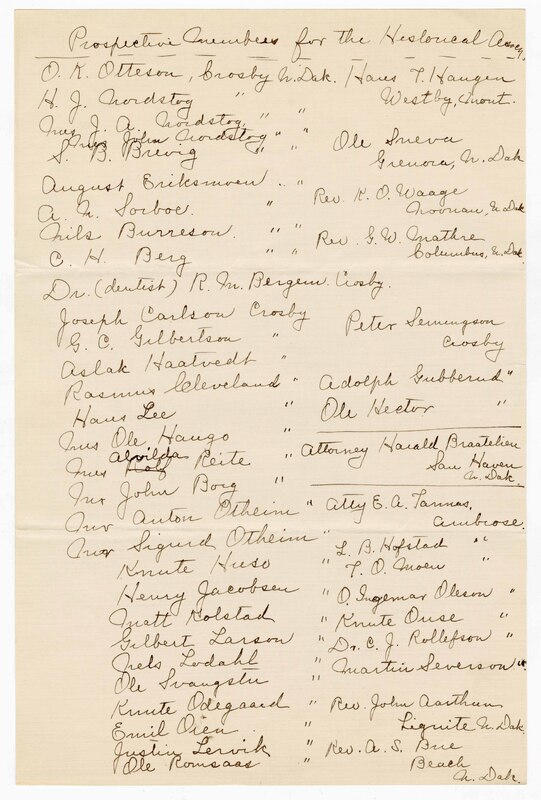 Prospective Members for the Historical Assoc.
O. K. Otteson, Crosby N. Dak.
H. J. Nordstog " "
Mrs J. A. Nordstog " "
Mrs John Nordstog " "
S. B. Brevig " "
August Eriksmoen " "
A. N. Sorboe "
Nils Burreson " "
C. H. Berg " "
Dr. (dentist) R. M. Bergem. Crosby.
Joseph Carlson Crosby
G. C. Gilbertson "
Aslak Haatvedt "
Rasmus Cleveland "
Hans Lee "
Mrs Ole Haugo "
Mrs Alvilda Reite "
Mr John Borg "
Mr Anton Otheim "
Mr Sigurd Otheim "
Knute Huso "
Henry Jacobsen "
Matt Kolstad "
Gilbert Larson "
Nels Lodahl "
Ole Svangstu "
Knute Odegaard "
Emil Oien "
Justin Lervik "
Ole Romsaas "
Hans T. Haugen
Westby, Mont.
Ole Sneva
Grenora, N. Dak
Rev. K. O. Waage
Noonan, N. Dak
Rev. G. W. Mathre
Columbus, N. Dak.
Peter Semingson
Crosby
Adolph Gubberud "
Ole Hector "
Attorney Harald Braatelien
San Haven
N. Dak.
Atty E. A. Tannas,
Ambrose.
L. B. Hofstad "
T. O. Moen "
O. Ingemar Oleson "
Knute Ouse "
Dr. C. J. Rollefson "
Martin Severson "
Rev. John Aarthun
Lignite N. Dak.
Rev. A. S. Bue
Beach
N. Dak.